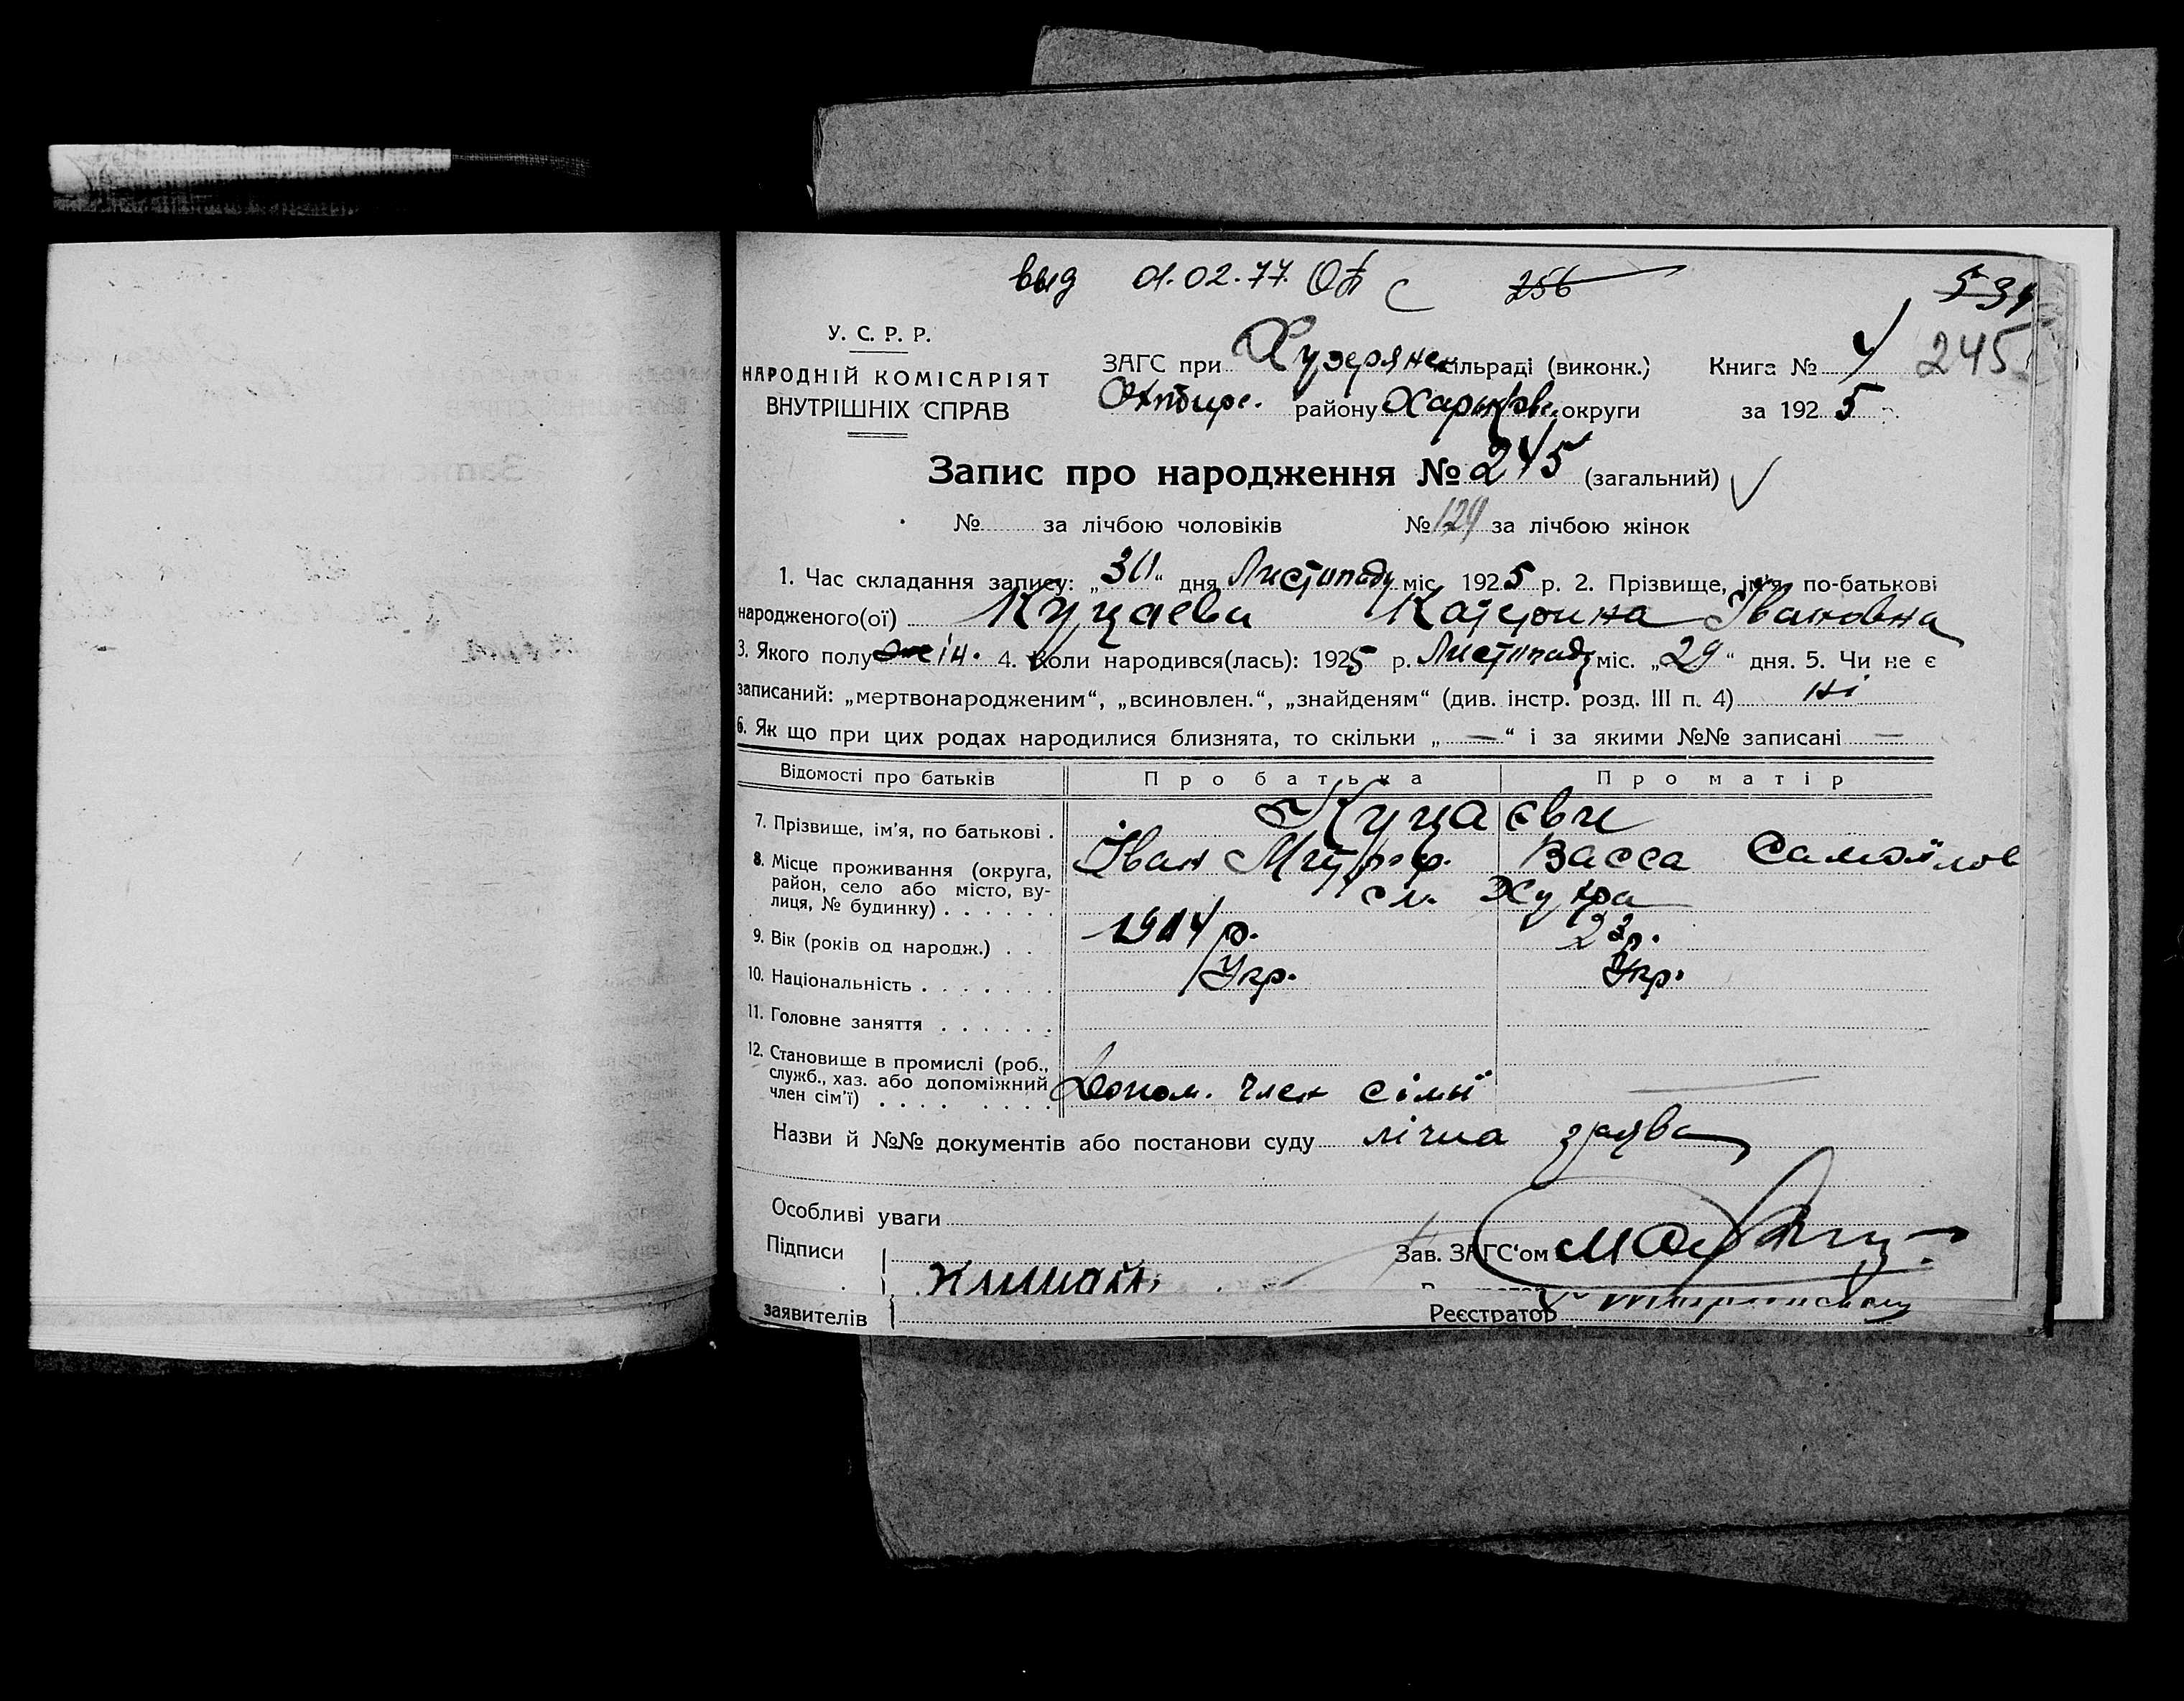 выд 01.02.77. 256 534
У. С. Р. Р.
НАРОДНІЙ КОМІСАРІЯТ
ВНУТРІШНІХ СПРАВ
ЗАГС при Хузерянс. сільраді (виконк.) Книга № 4 245
Охтир. району Харьков. округи за 1925
Запис про народження № 245 (загальний)
№ за лічбою чоловіків № 129 за лічбою жінок
1. Час складання запису: „30“ дня Листопаду міс. 1925 р. 2. Прізвище, ім'я, по-батькові
народженого(ої) Куцаева Катерина Івановна
3. Якого полу жін. 4. Коли народився(лась): 1925 р. Листопаду міс. „29“ дня. 5. Чи не є
записаний: „мертвонародженим“, „всиновлен.“, „знайденям“ (див. інстр. розд. III п. 4) ні
6. Як що при цих родах народилися близнята, то скільки „—“ і за якими №№ записані —
Відомості про батьків Про батька Про матір
7. Прізвище, ім'я, по батькові . Куцаєви
Іван Митроф. Васса Самойлов
8. Місце проживання (округа,
район, село або місто, ву-
лиця, № будинку) . . . . . . сл. Хухра
9. Вік (років од народж.) . . 1904 р. 22 р.
10. Національність . . . . . . . Укр. Укр.
11. Головне заняття . . . . . .
12. Становище в промислі (роб.,
служб., хаз. або допоміжний
член сім'ї) . . . . . . . . Допом. член сімї —
Назви й №№ документів або постанови суду лічна заява
Особливі уваги
Підписи Зав. ЗАГС'ом
заявителів Реєстратор